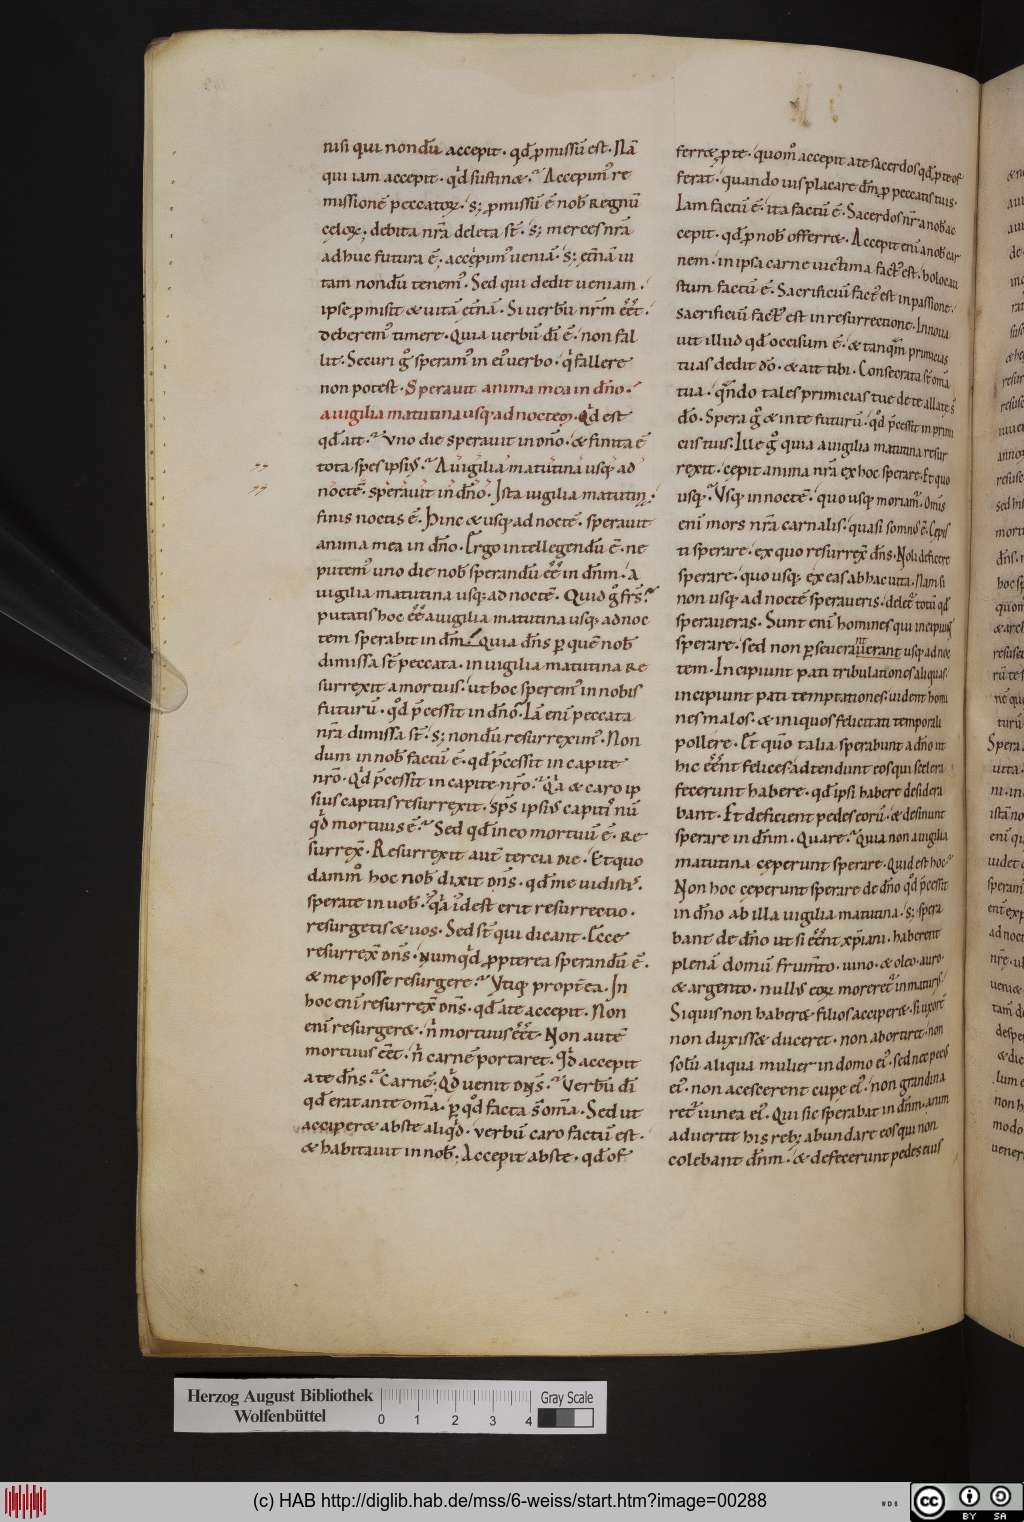 nisi qui nondū accepit· qđ ꝓmissū est· Nā
qui iam accepit· qͥd sustinæ· Accepimꝰ re
missionē peccatoꝝ· s; ꝓmissū ē nob̄ regnū
cęloꝝ; debita nr̄a deleta st̄· s; merces nr̄a
adhuc futura ē; accepimꝰ ueniā· s; et̄nā ui
tam nondū tenemꝰ· Sed qui dedit ueniam·
ipse ꝓmisit & uitā et̄nā· Si uerbū nr̄m ēēt·
deberemꝰ timere· Quia uerbū dī ē· non fal
lit· Securi gͦ speramꝰ in eiꝰ uerbo· qͥ fallere
non potest· Sperauit anima mea in dn̄o·
a uigilia matutina usq; ad noctem· Qͥd est
qđ ait· Vno die sperauit in dn̄o· & finita ē
tota spes ipsiꝰ· A uigilia matutina usq; ad
noctē· sperauit in dn̄o· Ista uigilia matutina·
finis noctis ē· Hinc & usq; ad noctē· sperauit
anima mea in dn̄o· Ergo intellegendū ē· ne
putemꝰ uno die nob̄ sperandū ēē in dn̄m· a
uigilia matutina usq; ad noctē· Quid gͦ frs̄·
putatis hoc ēē a uigilia matutina usq; ad noc
tem sperabit in dn̄m· Quia dn̄s ꝑ quē nob̄
dimissa st̄ peccata· in uigilia matutina re
surrexit a mortuis· ut hoc speremꝰ in nobis
futurū· qͦd p̄cessit in dn̄o· Iā enī peccata
nr̄a dimissa st̄· s; nondū resurreximꝰ· Non
dum in nob̄ factū ē· qđ p̄cessit in capite
nr̄o· Qͥd p̄cessit in capite nr̄o· Qͥa & caro ip
sius capitis resurrexit· sps̄ ipsiꝰ capitiꝰ nū
qͥd mortuus ē· Sed qđ in eo mortuū ē· re
surrex̄· Resurrexit aut̄ tercia die· Et quo
dammͦ hoc nob̄ dixit dn̄s· qđ me uidistiˢ·
sperate in uob̄· qͥa id est erit resurrectio·
resurgetis & uos· Sed st̄ qui dicant· Ecce
resurrex̄ dn̄s· numqͥd ꝓpterea sperandū ē·
& me posse resurgere· Vtiq; propt̄ea· In
hoc enī resurrex̄ dn̄s· qđ a te accepit· Non
enī resurgeræ· nͥ mortuus ēēt· Non autē
mortuus ēēt· nͥ carnē portaret· Qͥd accepit
a te dn̄s· Carnē; Qͥd uenit dn̄s· Verbū dī
qđ erat ante om̄a· ꝑ qͦd facta s̄ om̄a· Sed ut
acciperæ abs te aliqͥd· uerbū caro factū est·
& habitauit in nob̄; Accepit abs te· qđ of
ferræ ꝓ te· quomͦ accepit a te sacerdos qđ ꝓ te of
ferat· quando uis placare dn̄m ꝓ peccatis tuis·
Iam factū ē· ita factū ē· Sacerdos nr̄ a nob̄ ac
cepit· qđ ꝓ nob̄ offerræ· Accepit enī a nob̄ car
nem· in ipsa carne uictima factꝰ est· holocau
stum factū ē· Sacrificiū factꝰ est in passione·
sacrificiū factꝰ est in resurrectione· Innoua
uit illud qđ occisum ē· & tanqͣm primicias
tuas dedit dō· & ait tibi· Consecrata st̄ om̄a
tua· qn̄do tales primicias tue de te allate s̄
dō· Spera gͦ & in te futurū· qͦd p̄cessit in primi
ciis tuis· Ille gͦ quia a uigilia matutina resur
rexit· cepit anima nr̄a ex hoc sperare· Et quo
usq;· Vsq; in noctē· quo usq; moriamᷣ· Om̄is
enī mors nr̄a carnalis· quasi somnꝰ ē· Cepis
ti sperare· ex quo resurrex̄ dn̄s· Noli deficere
sperare· quo usq; exeas ab hac uita· Nam si
non usq; ad noctē speraueris· deletᷣ totū qđ
speraueras· Sunt enī homines qui incipiunt
sperare· sed non ꝑseuerauerant usq; ad noc
tem· Incipiunt pati tribulationes aliquas·
incipiunt pati temptationes· uident homi
nes malos· & iniquos felicitati temporali
pollere· Et quō talia sperabunt a dn̄o ut
hic ēēnt felices· adtendunt eos qui scelera
fecerunt habere· qđ ipsi habere desidera
bant· Et deficient pedes eorū· & desinunt
sperare in dn̄m· Quare· Quia non a uigilia
matutina ceperunt sperare· Quid est hoc·
Non hoc ceperunt sperare de dn̄o qͦd p̄cessit
in dn̄o ab illa uigilia matutina· s; spera
bant de dn̄o ut si ēēnt xp̄iani· haberent
plenā domū frum̄to· uino· & oleo· auro·
& argento· nullꝰ eoꝝ morerētᷣ inmaturꝰ·
Si quis non haberæ filios acciperæ· Si uxorē
non duxissæ duceret· non abortiret· non
solū aliqua mulier in domo eiꝰ· sed nec pecꝰ
eiꝰ· non acescerent cupe eiꝰ· non grandina
retᷣ uinea eiꝰ· Qui sic sperabat in dn̄m· anim
aduertit his reb; abundare eos qui non
colebant dn̄m· & defecerunt pedes eius
Herzog August Bibliothek
Wolfenbüttel
0 1 2 3 4
Gray Scale
(c) HAB http://diglib.hab.de/mss/6-weiss/start.htm?image=00288
cc BY SA